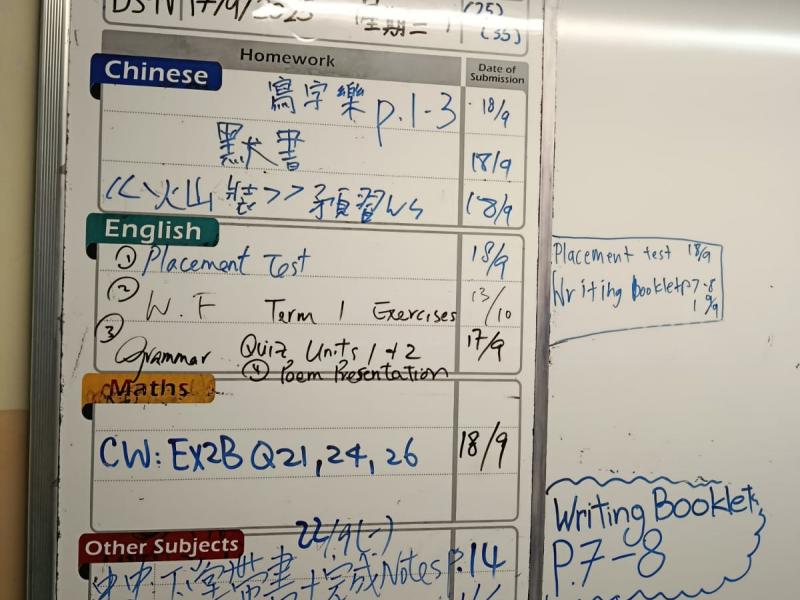 17/9/2025 星期二 (25)
(35)
Homework
Date of Submission
Chinese
寫字樂 p.1-3 18/9
默書 18/9
<<火山 >>預習ws 18/9
English
① Placement Test 18/9
② W.F Term 1 Exercises 13/10
③ Grammar Quiz, Units 1 + 2 17/9
④ Poem Presentation
Maths
CW: EX2B Q21, 24, 26 18/9
22/9(一)
Other Subjects
下堂帶書 完成Notes P.14
Placement test 18/9
Writing booklet p7-8
19/9
Writing Booklet
P.7-8